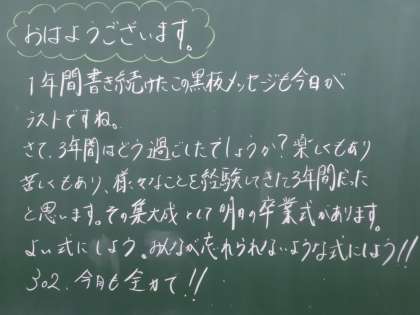 おはようございます。
1年間書き続けたこの黒板メッセージも今日が
ラストですね。
さて、3年間はどう過ごしたでしょうか?楽しくもあり
苦しくもあり、様々なことを経験してきた3年間だった
と思います。その集大成として明日の卒業式があります。
よい式にしよう。みんなが忘れられないような式にしよう!!
302.今日も全力で!!